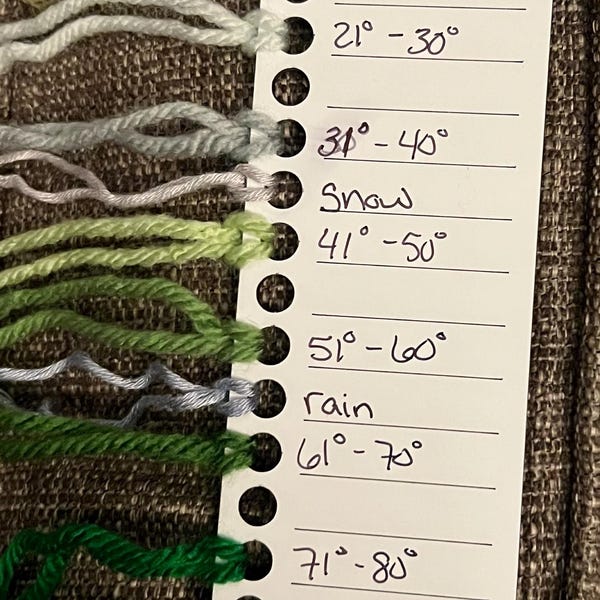 21° - 30°
31° - 40°
Snow
41° - 50°
51° - 60°
rain
61° - 70°
71° - 80°